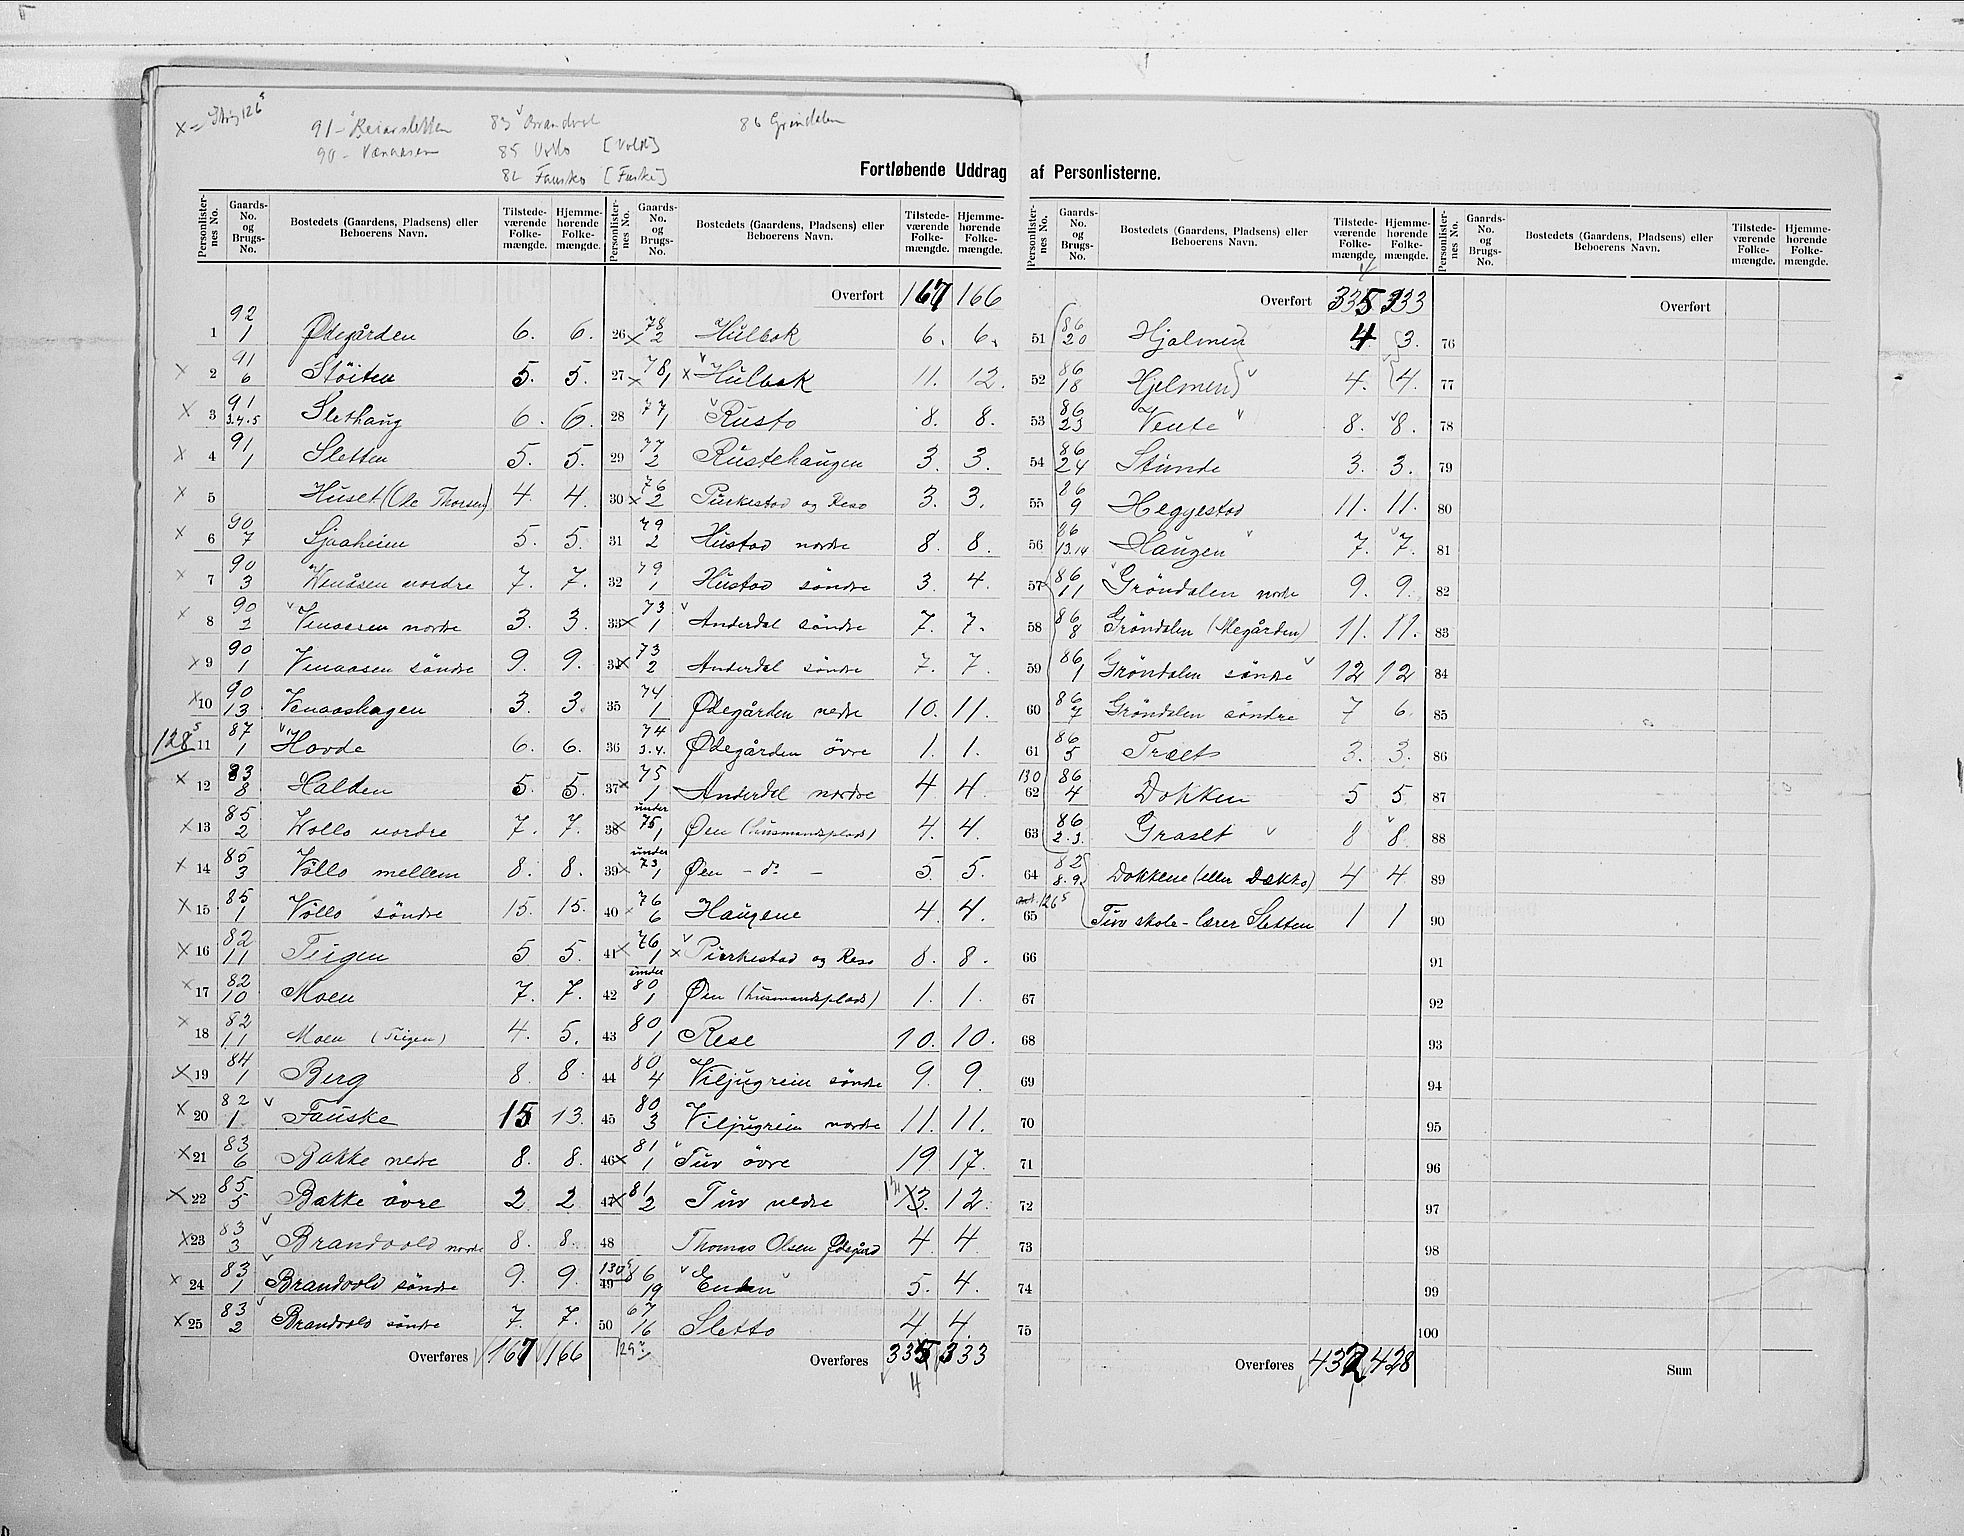 91 - Reiarsletten
90 - Vænaasen
83 Brandvol
85 Vollo [Vold]
82 Fausko [Fuske]
86 Gröndalen
Fortløbende Uddrag af Personlisterne.
Personlister-nes No. Gaards-No. og Brugs-No. Bostedets (Gaardens, Pladsens) eller Beboerens Navn. Tilstede-værende Folke-mængde. Hjemme-hørende Folke-mængde.
1 92/1 Ødegården 6. 6.
2 91/6 Stöiten 5. 5.
3 91/3.4.5 Slethaug 6. 6.
4 91/1 Sletten 5. 5.
5 Huset (Ole Thorsen) 4. 4.
6 90/7 Sjaaheim 5. 5.
7 90/3 Wenåsen nordre 7. 7.
8 90/2 Venaasen nordre 3. 3.
9 90/1 Venaasen söndre 9. 9.
10 90/13 Venaashagen 3. 3.
128⁵ 11 87/1 Hovde 6. 6.
12 83/8 Halden 5. 5.
13 85/2 Wollo nordre 7. 7.
14 85/3 Völlo mellem 8. 8.
15 85/1 Völlo söndre 15. 15.
16 82/11 Teigen 5 5.
17 82/10 Moen 7. 7.
18 82/11 Moen (Teigen) 4. 5.
19 84/1 Berg 8. 8.
20 82/1 Fauske 15 13.
21 83/6 Bakke nedre 8. 8.
22 85/5 Bakke övre 2 2
23 83/3 Brandvold nordre 8. 8.
24 83/1 Brandvold söndre 9. 9.
25 83/2 Brandvold söndre 7. 7.
Overføres 167 166
Personlister-nes No. Gaards-No. og Brugs-No. Bostedets (Gaardens, Pladsens) eller Beboerens Navn. Tilstede-værende Folke-mængde. Hjemme-hørende Folke-mængde.
Overført 167 166
26 78/2 Hulbak 6. 6.
27 78/1 Hulbak 11. 12.
28 77/1 Rusto 8. 8.
29 77/2 Rustehaugen 3. 3.
30 76/2 Purkestad og Reso 3. 3.
31 79/2 Hustad nordre 8. 8.
32 79/1 Hustad söndre 3. 4.
33 73/1 Anderdal söndre 7. 7.
34 73/2 Anderdal söndre 7. 7.
35 74/1 Ødegården nedre 10. 11.
36 74/3.4. Ødegården övre 1. 1.
37 75/1 Anderdal nordre 4 4.
38 under 75/1 Øen (husmandsplads) 4. 4.
39 under 73/1 Øen - do - 5. 5.
40 76/6 Haugene 4. 4.
41 76/1 Purkestad og Reso 8. 8.
42 under 80/1 Øen (husmandsplads) 1. 1.
43 80/1 Rese 10. 10.
44 80/4 Viljugrein söndre 9. 9.
45 80/3 Viljugrein nordre 11. 11.
46 81/1 Tuv övre 19 17.
47 81/2 Tuv nedre 13. 12.
48 Thomas Olsen Ødegård 4. 4.
130⁵ 49 86/19 Enden 5. 4.
50 67/16 Sletto 4. 4.
Overføres 335 333
4
Personlister-nes No. Gaards-No. og Brugs-No. Bostedets (Gaardens, Pladsens) eller Beboerens Navn. Tilstede-værende Folke-mængde. Hjemme-hørende Folke-mængde.
Overført 335 333
51 86/20 Hjalmen 4 3.
52 86/18 Hjelmen 4. 4.
53 86/23 Vente 8. 8.
54 86/24 Stunde 3. 3.
55 86/9 Heggestad 11. 11.
56 86/13.14 Haugen 7. 7.
57 86/11 Gröndalen nordre 9. 9.
58 86/8 Gröndalen (Megården) 11. 11.
59 86/1 Gröndalen söndre 12 12
60 86/7 Gröndalen söndre 7 6.
61 86/5 Træet 3. 3.
130 62 86/4 Dokken 5 5
63 86/2.3. Graset 8 8
64 82/8.9. Dokkene (eller Dækko) 4 4
126⁵ 65 Tuv skole - lærer Sletten 1 1
66
67
68
69
70
71
72
73
74
75
Overføres 432 428
Personlister-nes No. Gaards-No. og Brugs-No. Bostedets (Gaardens, Pladsens) eller Beboerens Navn. Tilstede-værende Folke-mængde. Hjemme-hørende Folke-mængde.
Overført
76
77
78
79
80
81
82
83
84
85
86
87
88
89
90
91
92
93
94
95
96
97
98
99
100
Sum